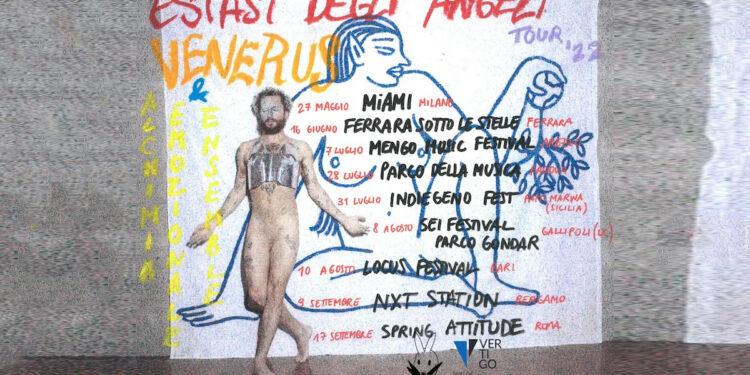 ESTASI DEGLI ANGELI
TOUR '22
VENERUS
&
ALCHIMIA
EMOZIONALE
ENSEMBLE
27 MAGGIO MiAMI MILANO
16 GIUGNO FERRARA SOTTO LE STELLE FERRARA
7 LUGLIO MENGO MUSIC FESTIVAL AREZZO
28 LUGLIO PARCO DELLA MUSICA PADOVA
31 LUGLIO INDIEGENO FEST MARINA
(SICILIA)
8 AGOSTO SEI FESTIVAL
PARCO GONDAR GALLIPOLI (LE)
10 AGOSTO LOCUS FESTIVAL BARI
9 SETTEMBRE NXT STATION BERGAMO
17 SETTEMBRE SPRING ATTITUDE ROMA
VERTIGO